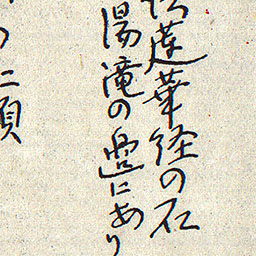 蓮華経の石
湯滝の邊にあり
の二頁